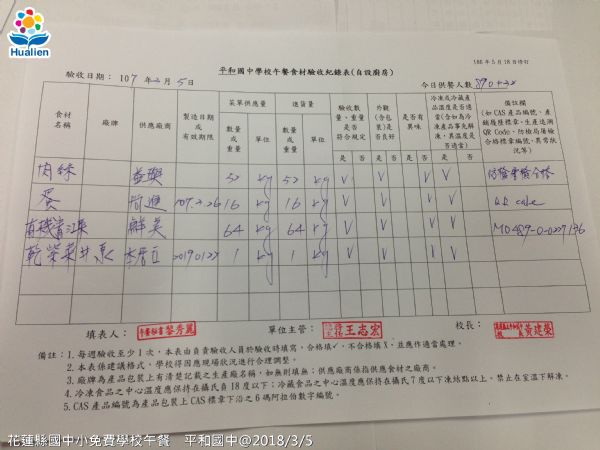 Hualien
106年5月18日修訂
平和國中學校午餐食材驗收紀錄表(自設廚房)
驗收日期：107年3月5日
今日供餐人數：890+32
食材名稱 廠牌 供應廠商 製造日期或有效期限 菜單供應量 數量或重量 單位 進貨量 數量或重量 單位 驗收數量、重量是否符合規定 是 否 外觀(含包裝)是否良好 是 否 是否有異味 是 否 冷凍及冷藏產品溫度是否適當(合如為冷凍產品事先解凍，其溫度是否適當) 是 否 備註欄(如CAS產品編號、產銷履歷標章、生產追溯QR Code、防檢局屠檢合格標章編號、異常狀況等)
肉絲 益興 52 kg 52 kg V V V V 防檢屠檢合格
蛋 107.2.26 16 kg 16 kg V V V V QR code
64 kg 64 kg V V V V
乾紫菜 20190122 1 kg 1 kg V V V V
填表人： 午餐秘書 黎秀麗 單位主管： 王志宏 校長： 黃建榮
備註：1.每週驗收至少1次，本表由負責驗收人員於驗收時填寫，合格填✓，不合格填X，並應作適當處理。
2.本表係建議格式，學校得因應現場狀況進行合理調整。
3.廠牌為產品包裝上有清楚記載之生產廠名稱，如無則填無；供應廠商係指供應食材之廠商。
4.冷凍食品之中心溫度應保持在攝氏負18度以下；冷藏食品之中心溫度應保持在攝氏7度以下凍結點以上。禁止在室溫下解凍。
5.CAS產品編號為產品包裝上CAS標章下沿之6碼阿拉伯數字編號。
花蓮縣國中小免費學校午餐 平和國中@2018/3/5